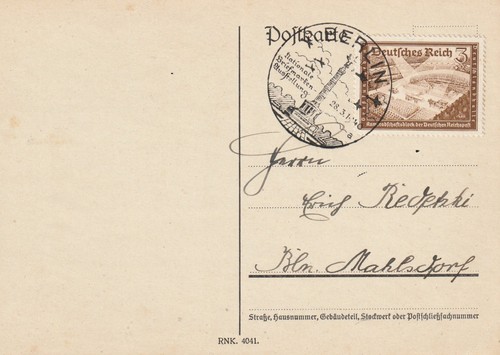 Postkarte
BERLIN
Nationale
Briefmarken-
Ausstellung
28.3.
a
Deutsches Reich
3
Kameradschaftsblock der Deutschen Reichspost
Herrn
Erich
Bln. Mahlsdorf
Straße, Hausnummer, Gebäudeteil, Stockwerk oder Postschließfachnummer
RNK. 4041.